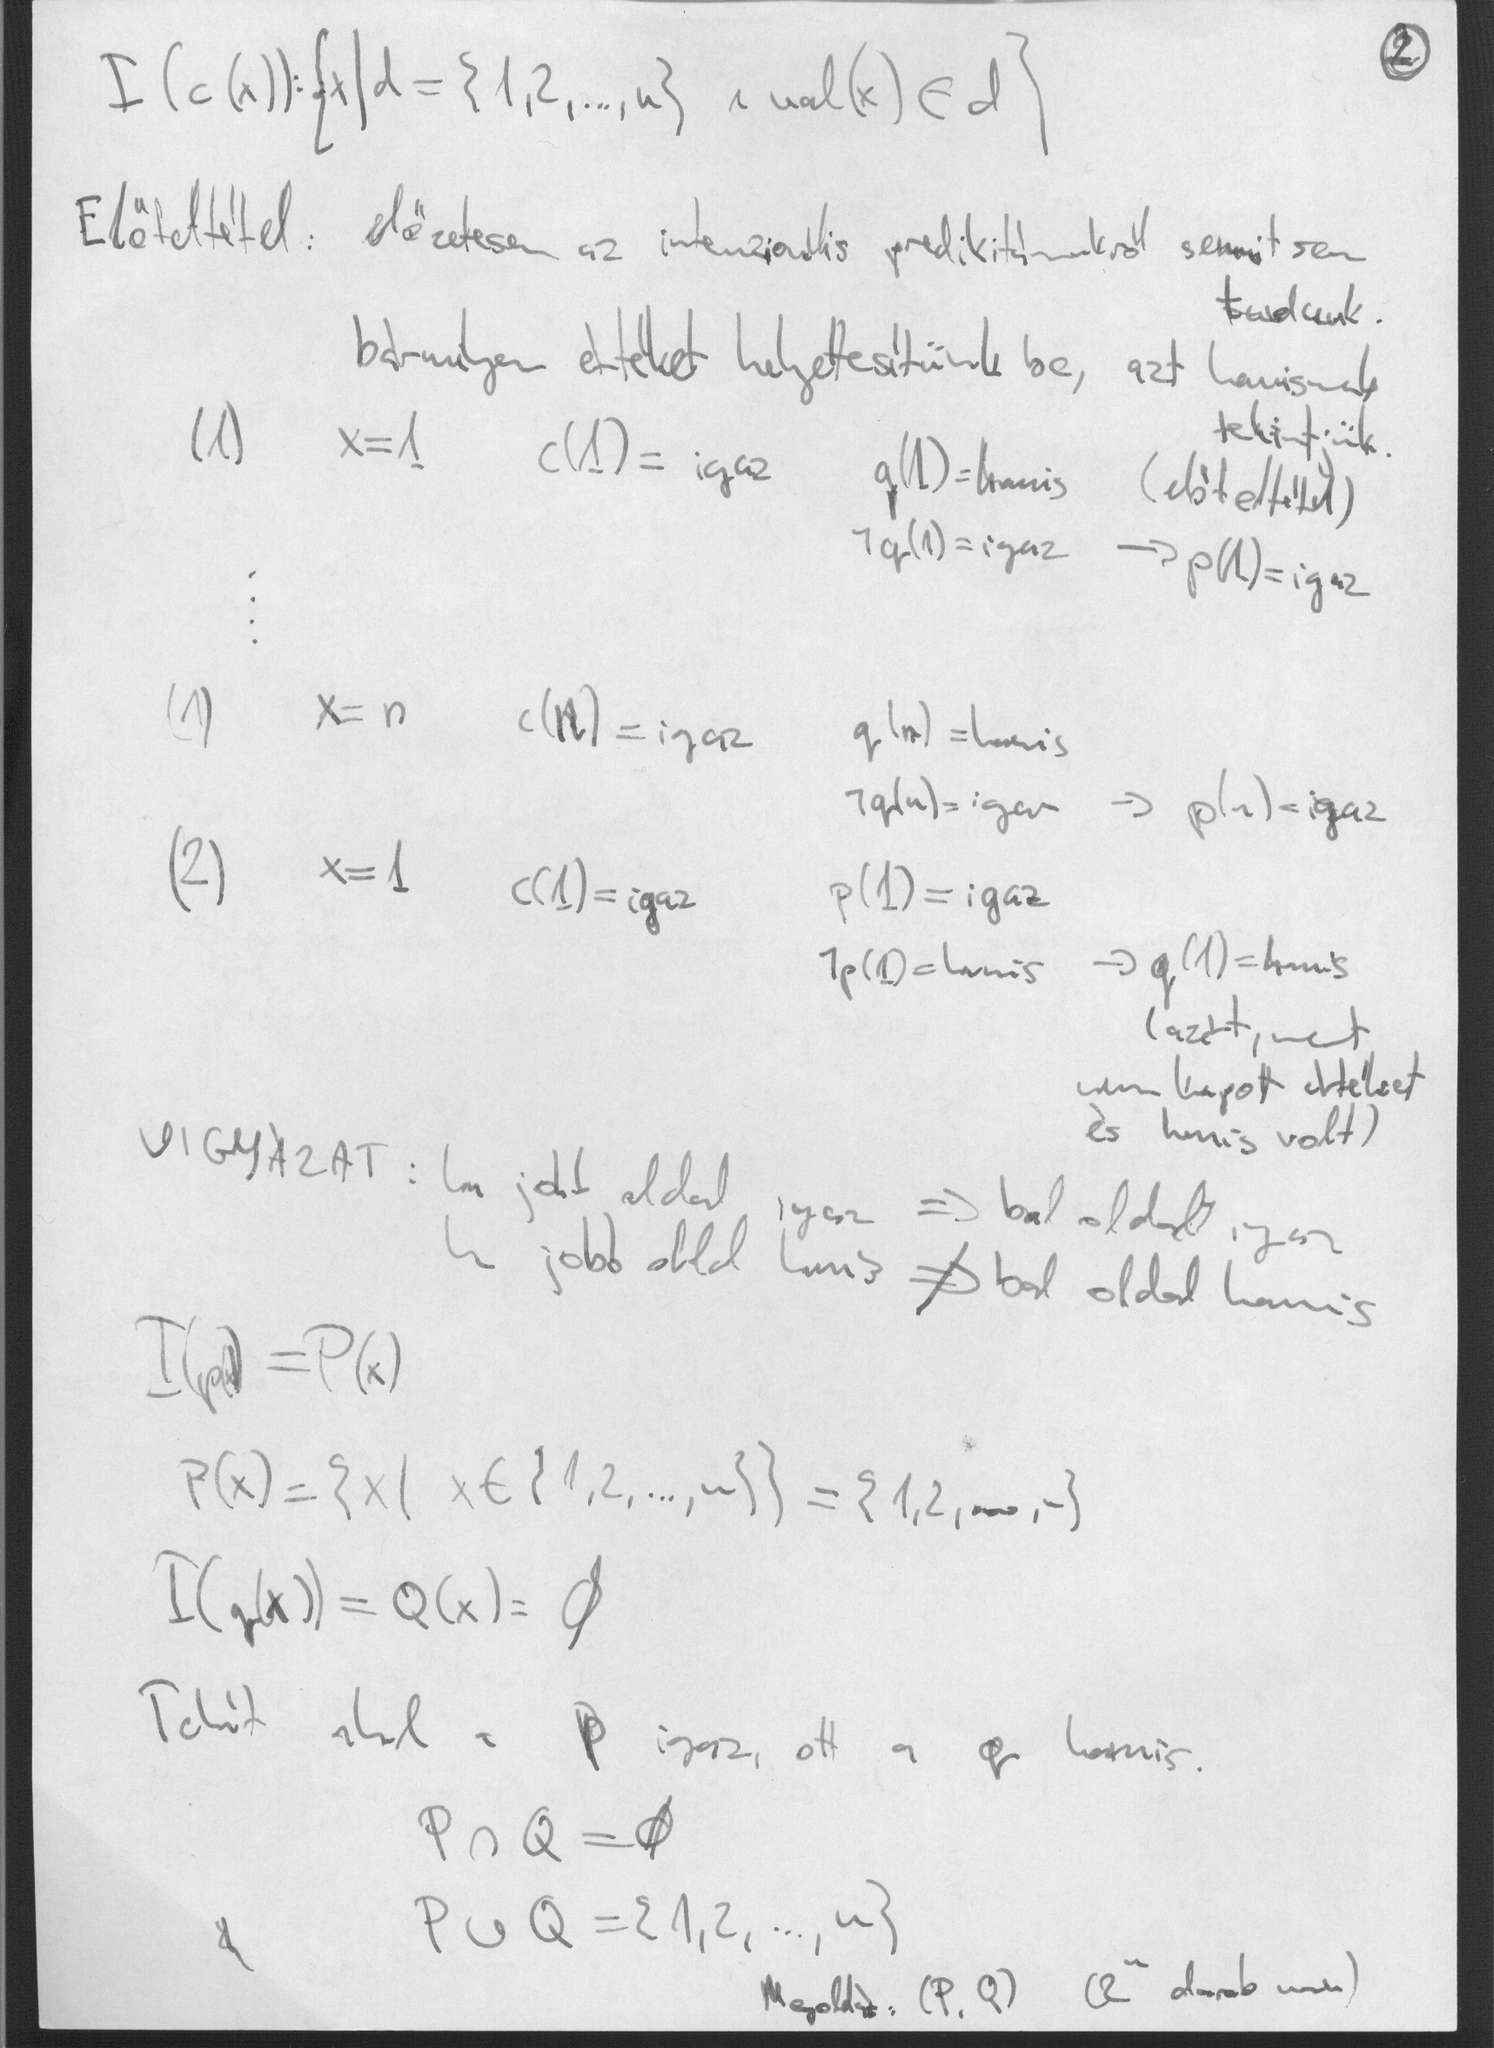 2
I(c(x)):{x|d={1,2,...,n} ∧ val(x)∈d}
Előfeltétel: előzetesen az intenzionális predikátumokról semmit sem
tudunk.
bármilyen értéket helyettesítünk be, azt hamisnak
tekintjük.
(1) x=1 c(1)=igaz q(1)=hamis (előfeltétel)
¬q(1)=igaz → p(1)=igaz
(1) x=n c(n)=igaz q(n)=hamis
¬q(n)=igaz → p(n)=igaz
(2) x=1 c(1)=igaz p(1)=igaz
¬p(1)=hamis → q(1)=hamis
(azért, mert
nem kapott értéket
és hamis volt)
VIGYÁZAT: ha jobb oldal igaz ⇒ bal oldal igaz
ha jobb oldal hamis ⇏ bal oldal hamis
I(p(x))=P(x)
P(x)={x| x∈{1,2,...,n}}={1,2,...,n}
I(q(x))=Q(x)=∅
Tehát ahol a p igaz, ott a q hamis.
P∩Q=∅
P∪Q={1,2,...,n}
Megoldás: (P,Q) (2ⁿ darab van)